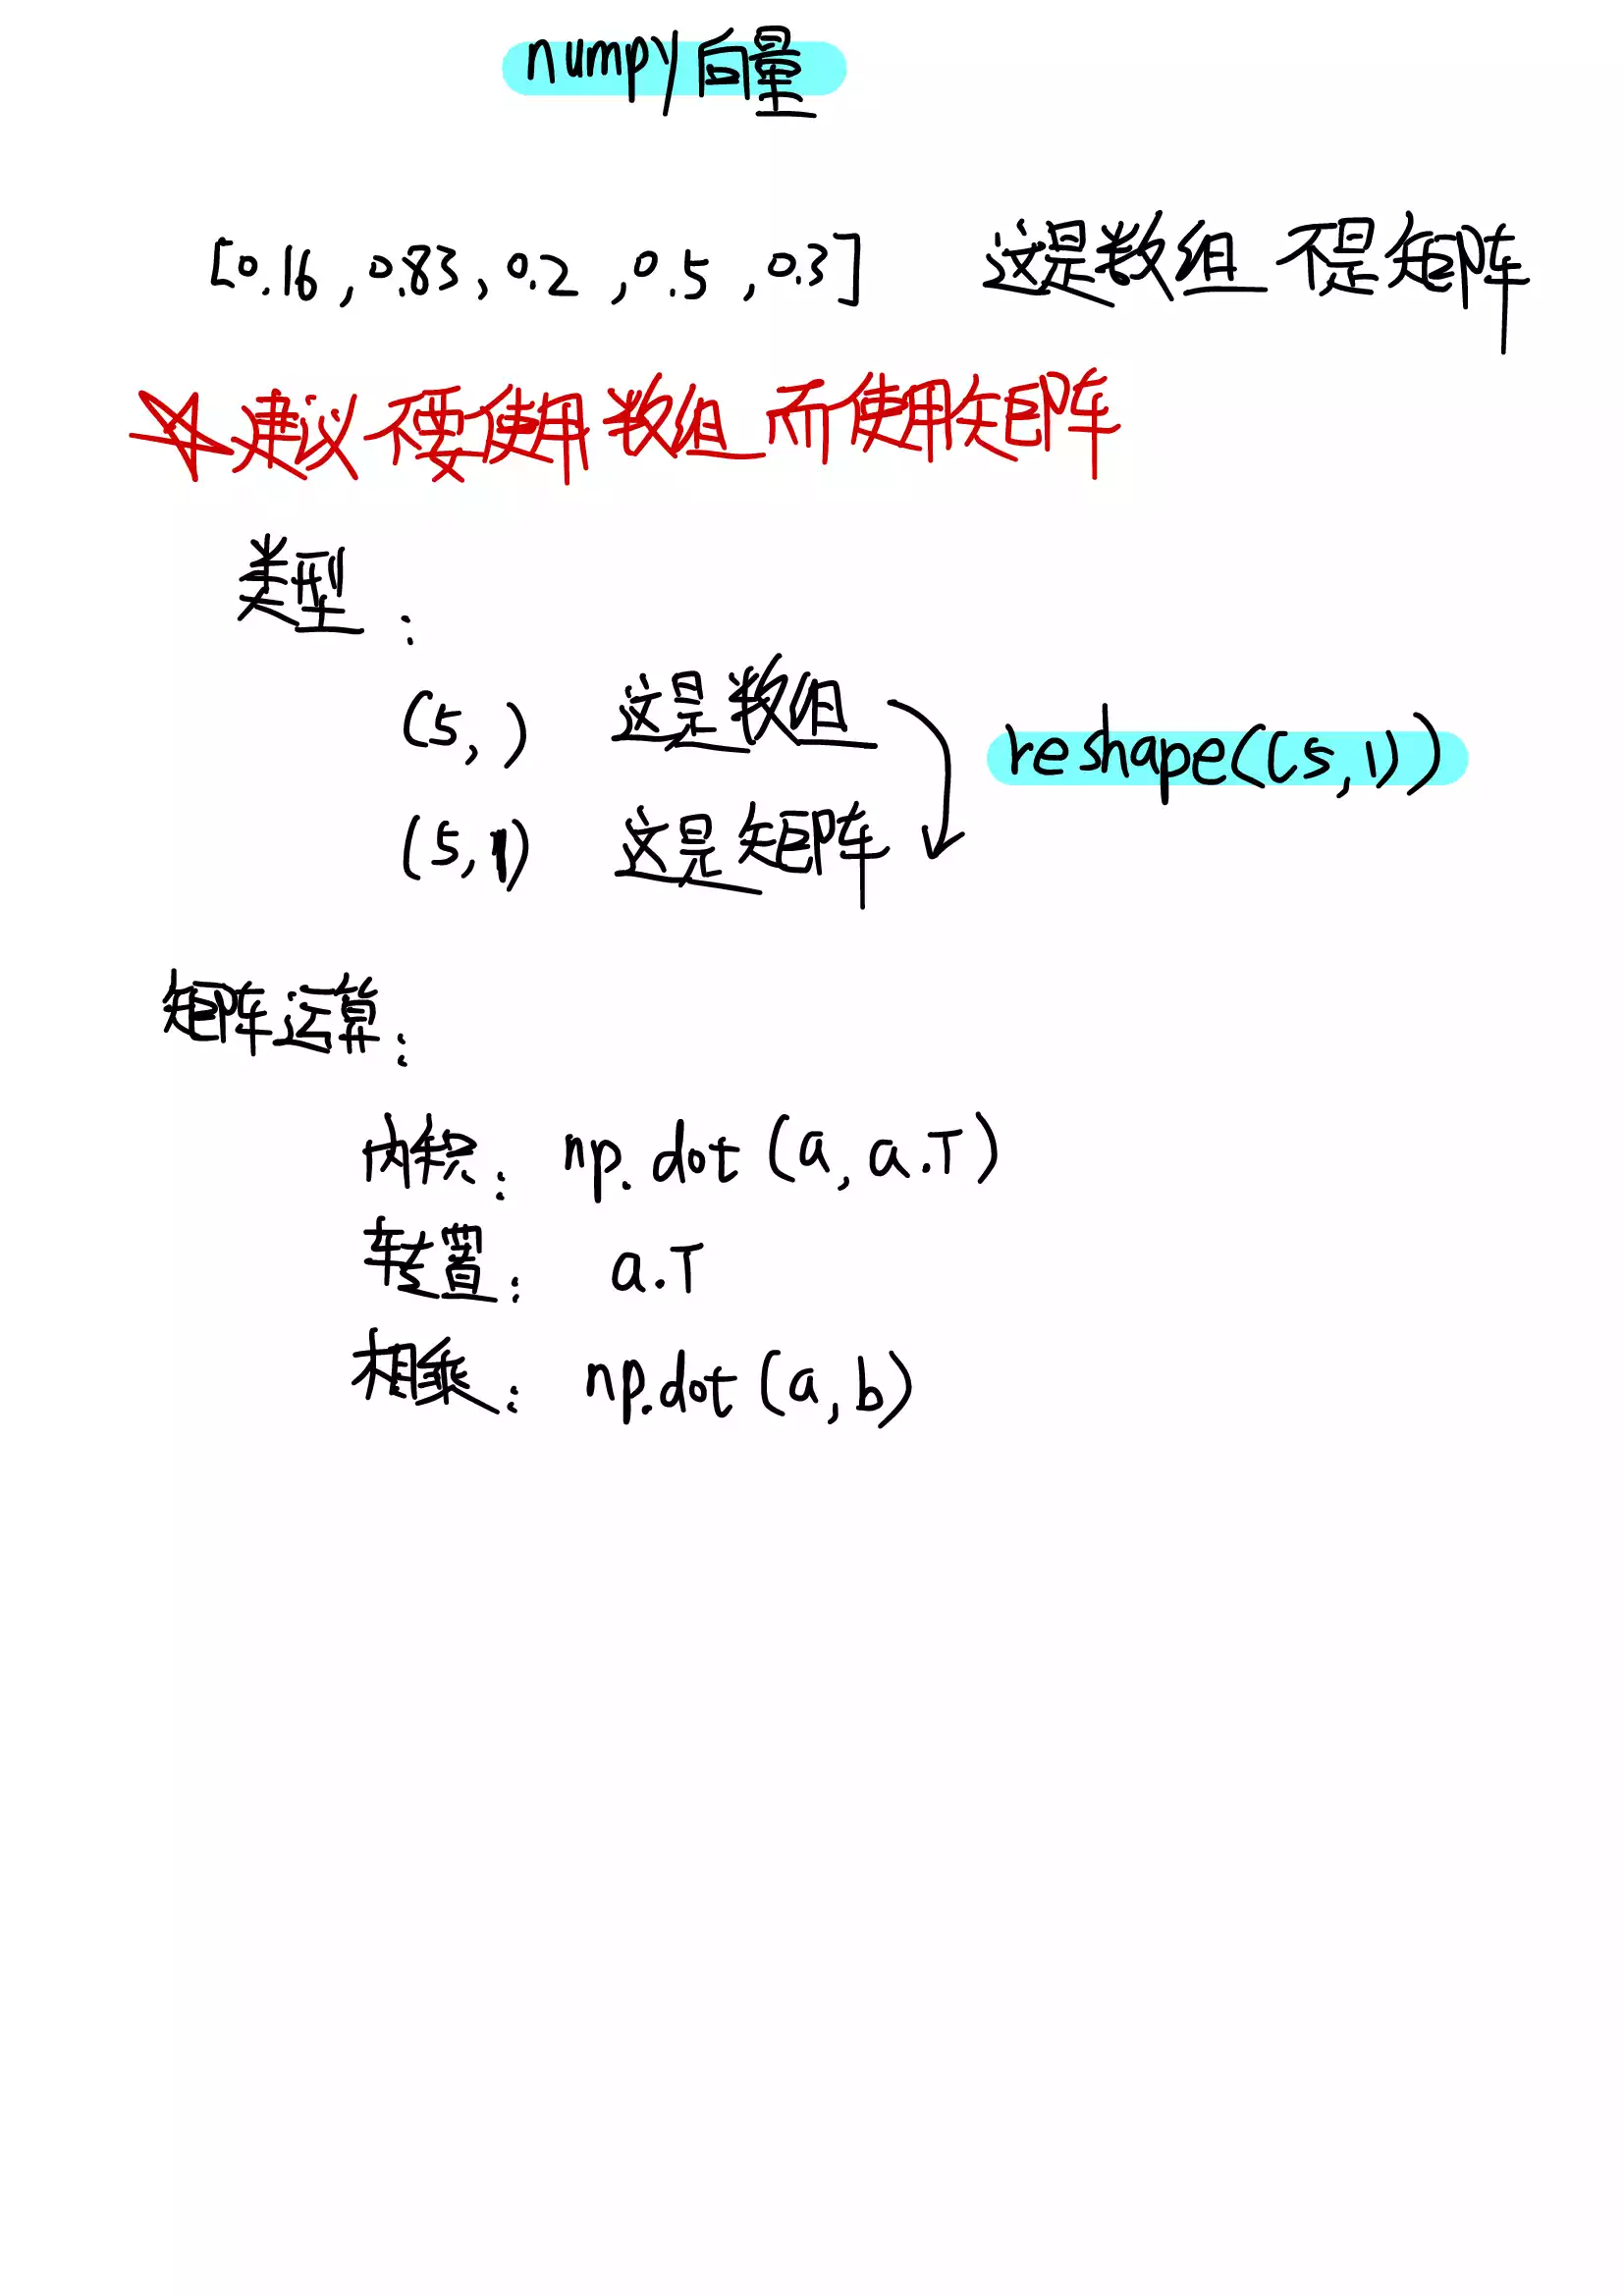 numpy向量
[0.16,0.83,0.2,0.5,0.3] 这是数组 不是矩阵
建议不要使用数组 而使用矩阵
类型:
(5,) 这是数组
reshape((5,1))
(5,1) 这是矩阵
矩阵运算:
内积: np.dot(a,a.T)
转置: a.T
相乘: np.dot(a,b)